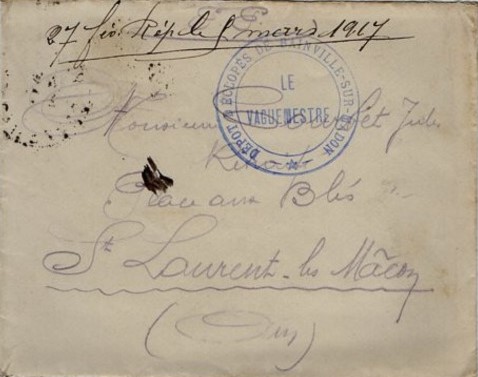 27 fév Rép le 8 mars 1917
DÉPOT D'ÉCLOPÉS DE BAINVILLE-SUR-MADON
LE
VAGUEMESTRE
Monsieur Jules
Place aux Blés
St Laurent-les Mâcon
(Ain)